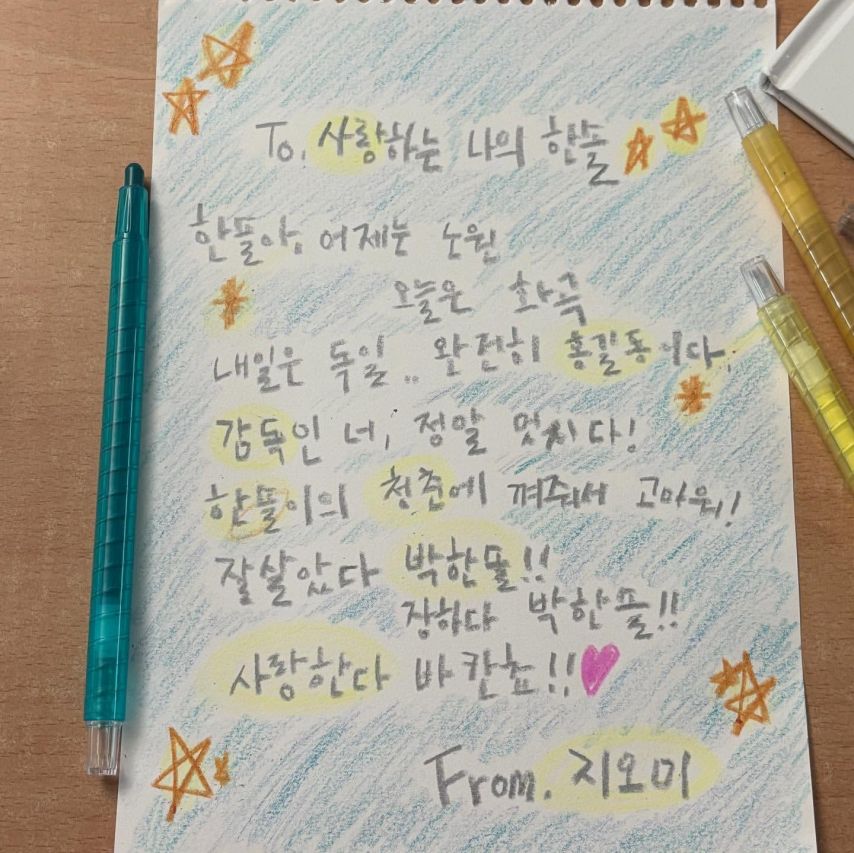 To. 사랑하는 나의 한돌
한돌아, 어제는 노원
오늘은 화곡
내일은 독일.. 완전히 홍길동이다.
감독인 너, 정말 멋지다!
한똘이의 청춘에 껴줘서 고마워!
잘살았다 박한똘!!
장하다 박한똘!!
사랑한다 바칸쵸!!
From. 지오미